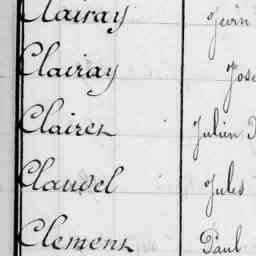 Clairay Jean
Clairay Jose
Claires Julien
Claudel Jules
Clemens Paul